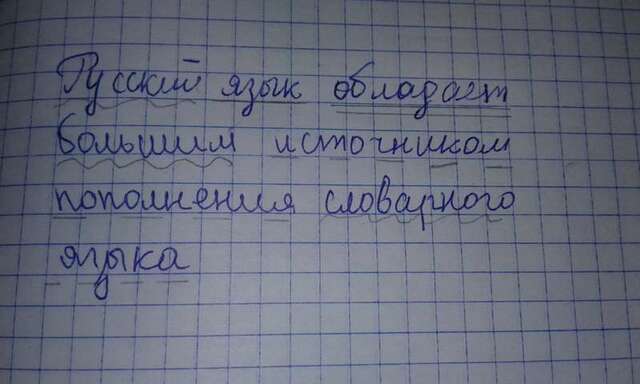 Русский язык обладает
большим источником
пополнения словарного
языка